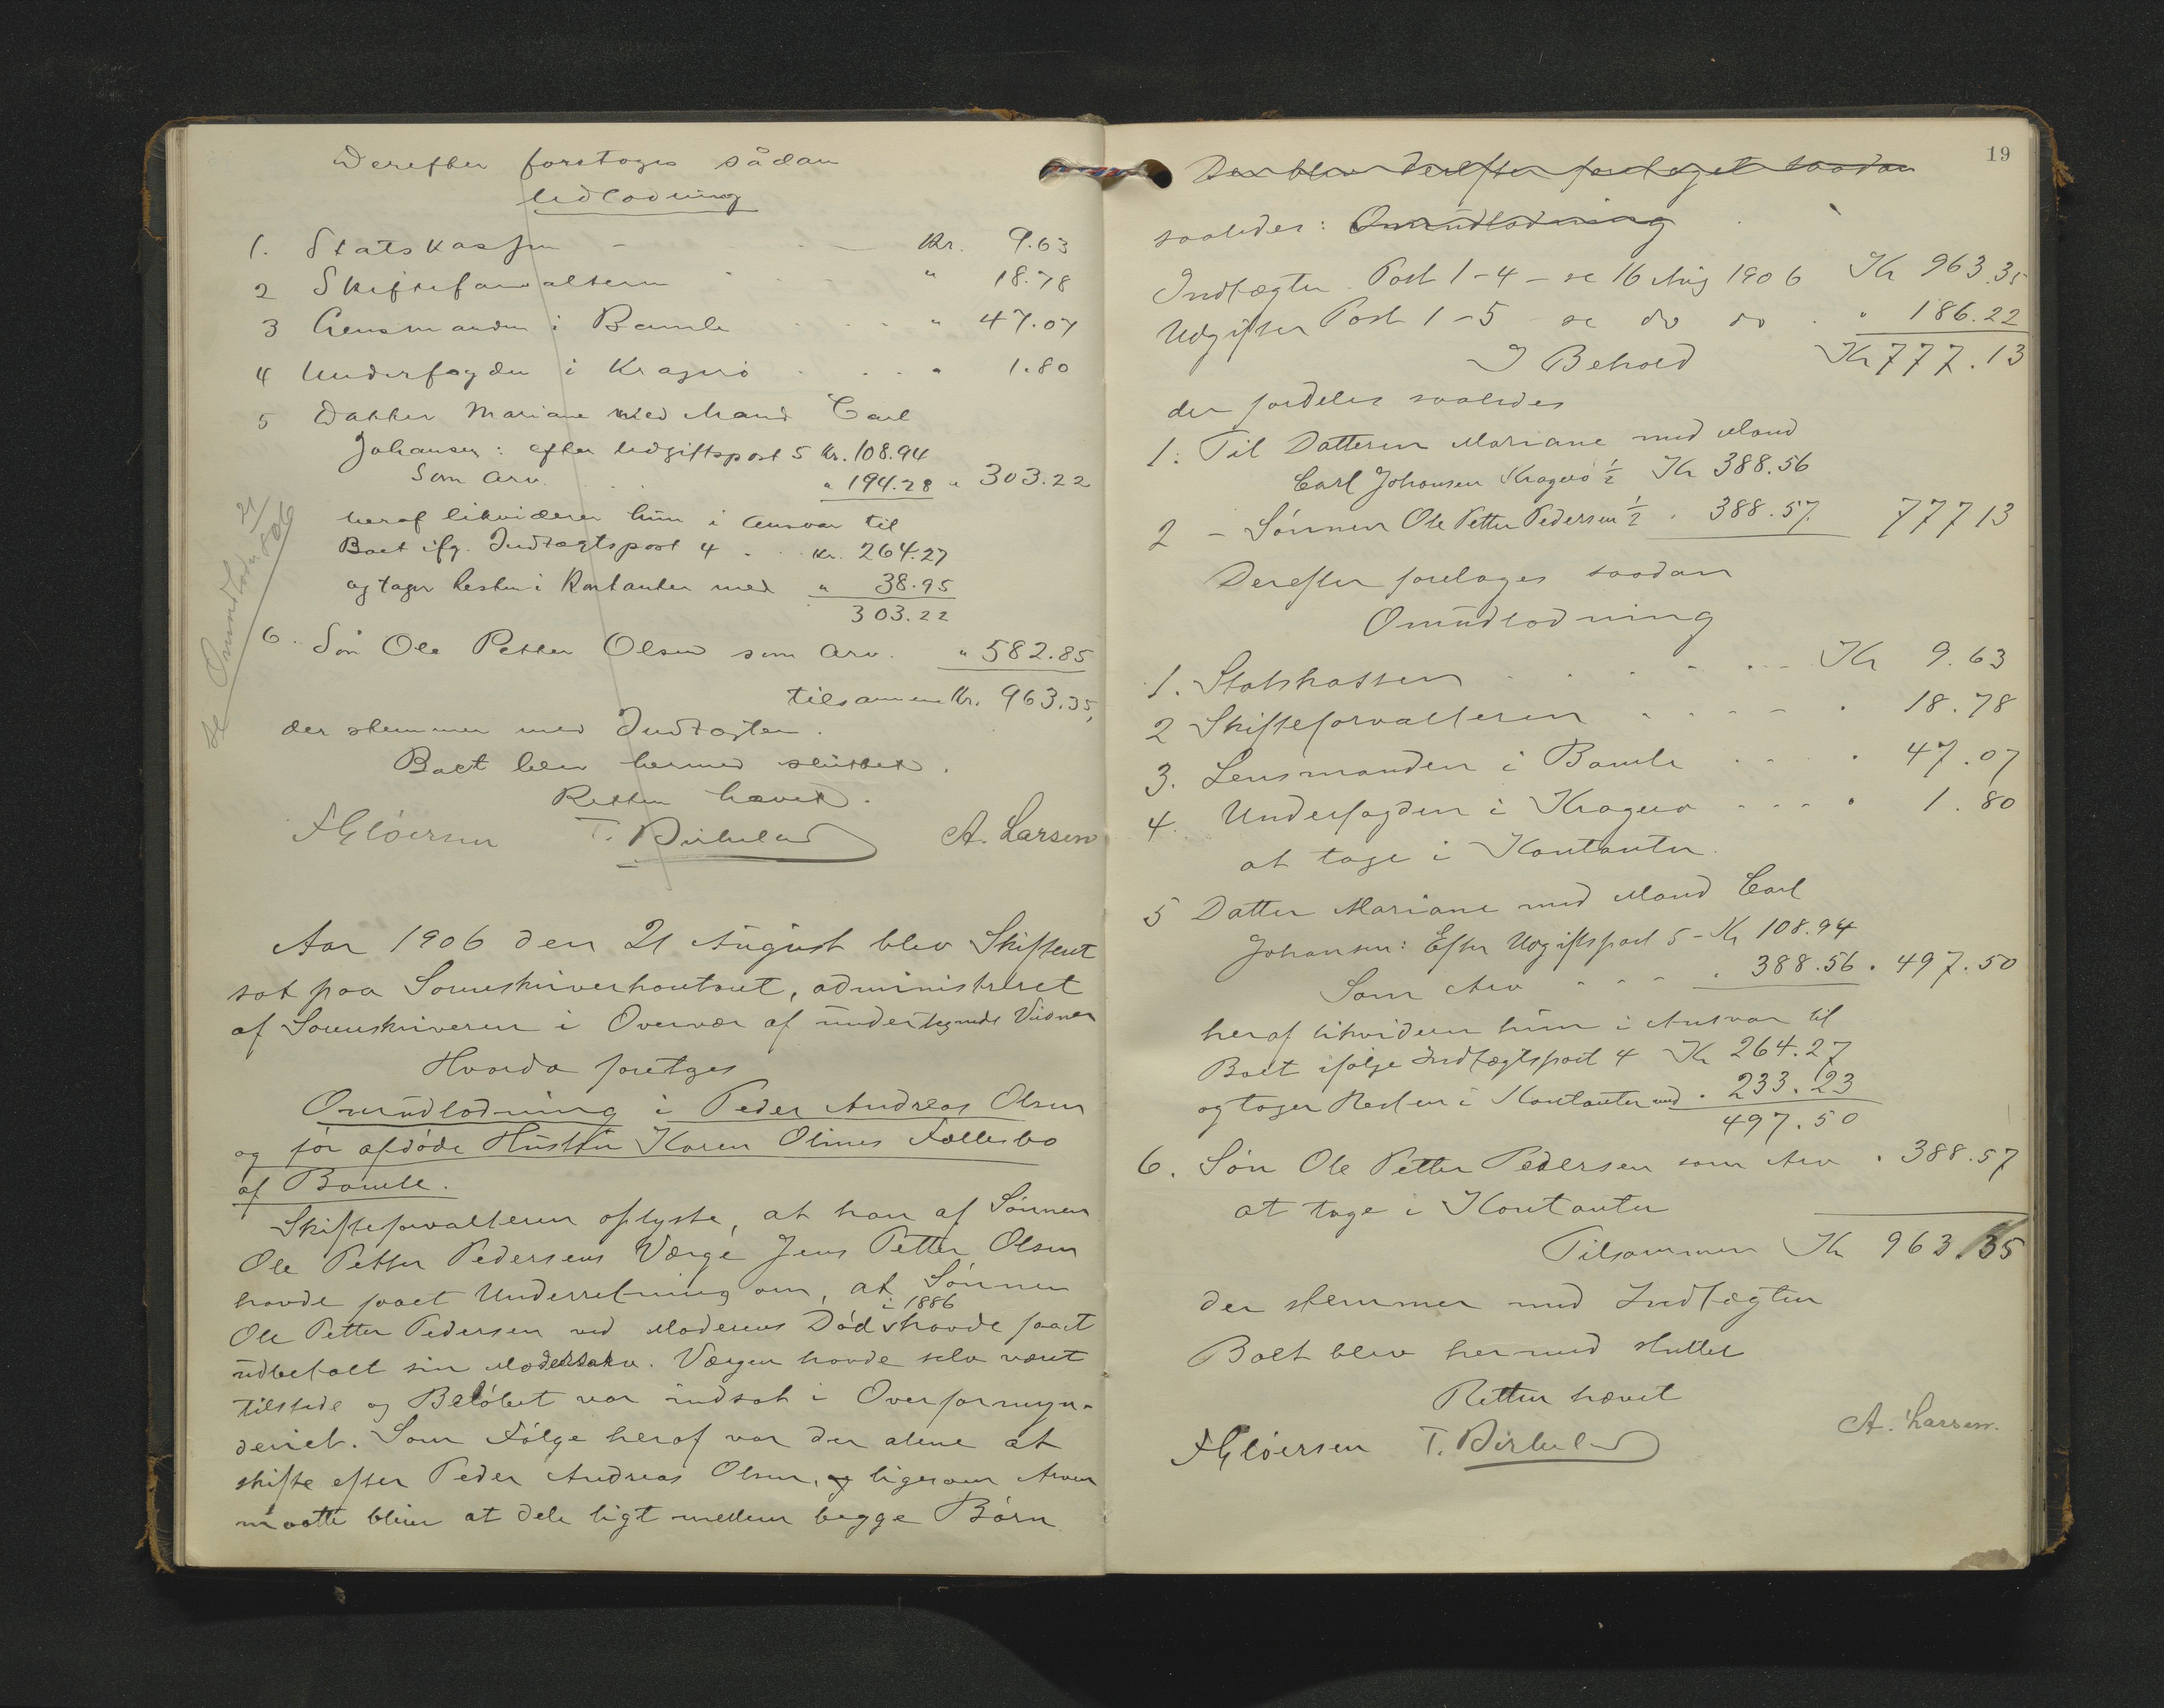 Derefter foretoges sådan
Udlodning
1. Statskassen - Kr. 9.63
2 Skifteforvalteren " 18.78
3 Lensmanden i Bamle " 47.07
4 Underfogden i Kragerø " 1.80
5 Datter Mariane med Mand Carl
Johansen: efter Udgiftspost 5 Kr. 108.94
Som Arv. " 194.28 " 303.22
heraf likviderer hun i Ansvar til
Boet ifg. Indtægtspost 4 - Kr. 264.27
og tager Resten i Kontanter med " 38.95
303.22
6. Søn Ole Petter Olsen som Arv. " 582.85
tilsammen Kr. 963.35,
der stemmer med Indtægten.
Boet blev hermed sluttet.
Retten hævet.
F Gløersen T. Birkeland A. Larsen
Se Omudlodn 21/8 06
Aar 1906 den 21 August blev Skifteret
sat paa Sorenskriverkontoret, administreret
af Sorenskriveren i Overvær af undertegnede Vidner
Hvorda foretoges
Omudlodning i Peder Andreas Olsen
og før afdøde Hustru Karen Olines Fællesbo
af Bamle.
Skifteforvalteren oplyste, at han af Sønnen
Ole Petter Pedersens Værge Jens Petter Olsen
havde faaet Underretning om, at Sønnen
Ole Petter Pedersen ved Moderens Død i 1886 havde faaet
udbetalt sin Modersarv. Værgen havde selv været
tilstede og Beløbet var indsat i Overformyn-
deriet. Som Følge heraf var der alene at
skifte efter Peder Andreas Olsen, og ligesom Arven
maatte bliver at dele ligt mellem begge Børn
19
Der blev derefter foretaget saadan
saaledes: Omudlodning
Indtægter Post 1-4 - se 16 Aug 1906 Kr 963.35
Udgifter Post 1-5 - se do do " 186.22
I Behold Kr 777.13
der fordeles saaledes
1. Til Datteren Mariane med Mand
Carl Johansen Kragerø 1/2 Kr 388.56
2 - Sønnen Ole Petter Pedersen 1/2 " 388.57 777 13
Derefter foretages saadan
Omudlodning
1. Statskassen Kr 9.63
2 Skifteforvalteren " 18.78
3. Lensmanden i Bamle " 47.07
4. Underfogden i Kragerø " 1.80
at tage i Kontanter.
5 Datter Mariane med Mand Carl
Johansen: Efter Udgiftspost 5 - Kr 108.94
Som Arv " 388.56 " 497.50
heraf likviderer hun i Ansvar til
Boet ifølge Indtægtspost 4 Kr 264.27
og tager Resten i Kontanter med " 233.23
497.50
6. Søn Ole Petter Pedersen som Arv " 388.57
at tage i Kontanter
Tilsammen Kr 963.35
der stemmer med Indtægten
Boet blev hermed sluttet
Retten hævet
F Gløersen T. Birkeland A. Larsen.